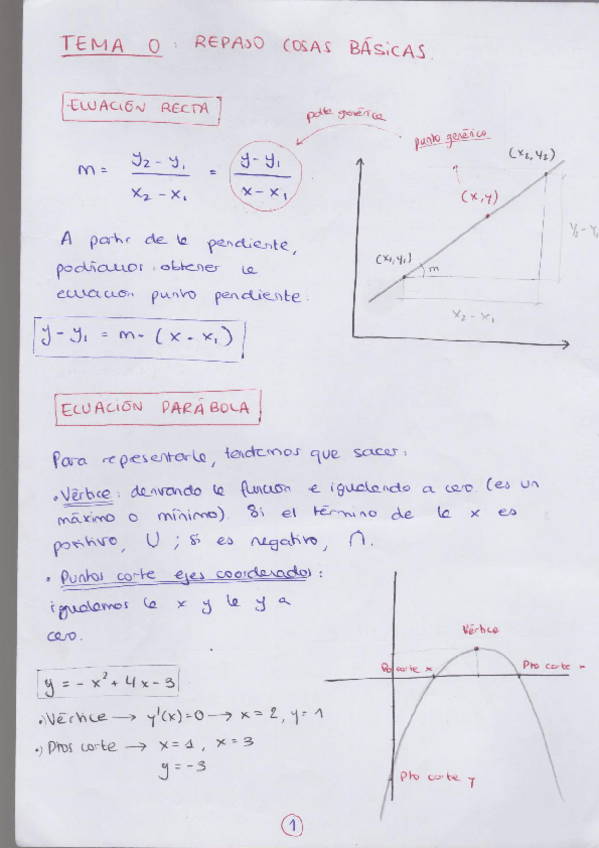 TEMA 0: REPASO COSAS BÁSICAS.
ECUACIÓN RECTA
m = (y₂ - y₁)/(x₂ - x₁) = (y - y₁)/(x - x₁)
punto genérico
(x₂, y₂)
(x, y)
(x₁, y₁)
m
y₂ - y₁
x₂ - x₁
A partir de la pendiente,
podríamos obtener la
ecuación punto pendiente:
y - y₁ = m · (x - x₁)
ECUACIÓN PARÁBOLA
Para representarla, tendremos que sacar:
• Vértice: derivando la función e igualando a cero. (es un
máximo o mínimo). Si el término de la x es
positivo, ∪ ; si es negativo, ∩.
• Puntos corte ejes coordenados:
igualamos la x y la y a
cero.
Vértice
Pto corte x
Pto corte x
Pto corte y
y = - x² + 4x - 3
•) Vértice → y'(x)=0 → x = 2, y = 1
•) Ptos corte → x = 1, x = 3
y = -3
1